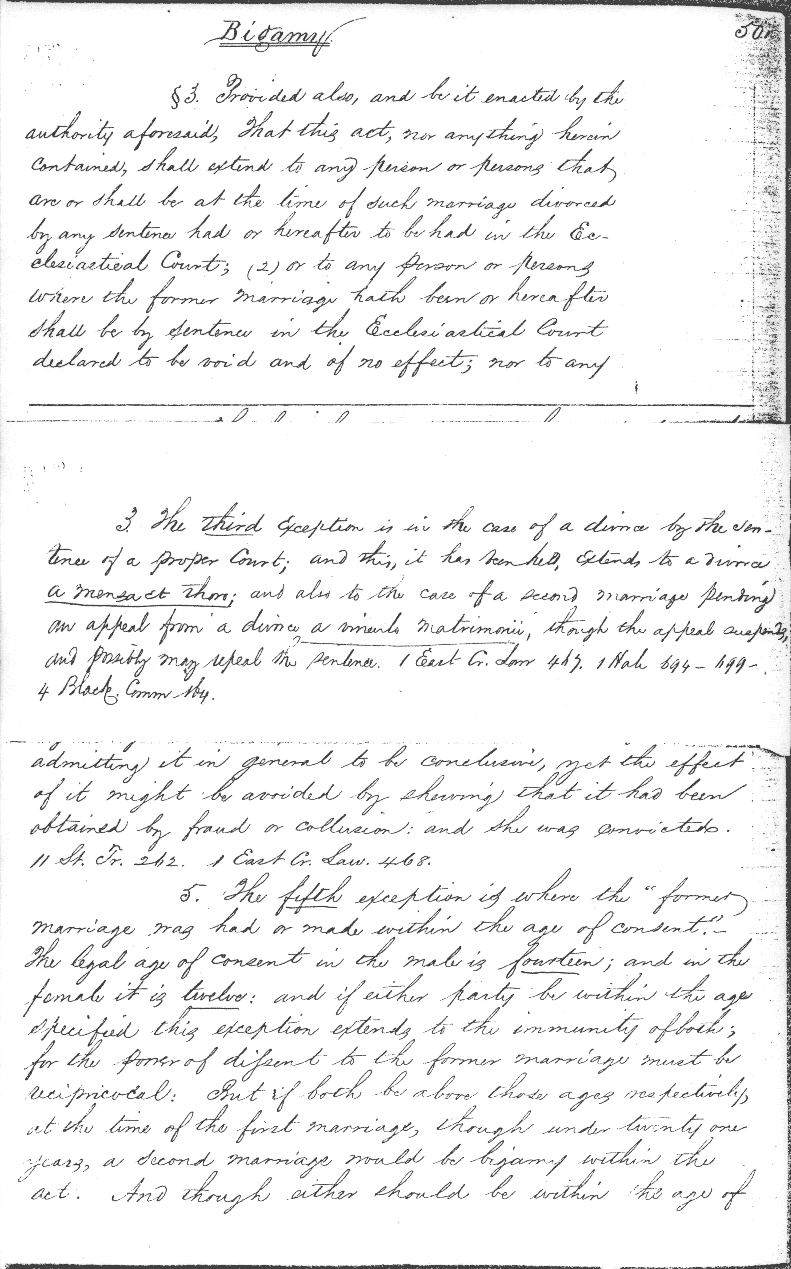 Bigamy
50
§3. Provided also, and be it enacted by the
authority aforesaid, That this act, nor any thing herein
contained, shall extend to any person or persons that
are or shall be at the time of such marriage divorced
by any sentence had or hereafter to be had in the Ec-
clesiastical Court; (2) or to any person or persons
where the former marriage hath been or hereafter
shall be by sentence in the Ecclesiastical Court
declared to be void and of no effect; nor to any
3. The third exception is in the case of a divorce by the sen-
tence of a proper Court; and this, it has been held, extends to a divorce
a mensa et thoro; and also to the case of a second marriage pending
an appeal from a divorce a vinculo matrimonii, though the appeal suspends,
and possibly may repeal the sentence. 1 East Cr. Law 467. 1 Hale 694-699-
4 Black. Comm 164.
admitting it in general to be conclusive, yet the effect
of it might be avoided by shewing that it had been
obtained by fraud or collusion: and she was convicted.
11 St. Tr. 262. 1 East Cr. Law. 468.
5. The fifth exception is where the "former
marriage was had or made within the age of consent."-
The legal age of consent in the male is fourteen; and in the
female it is twelve: and if either party be within the age
specified this exception extends to the immunity of both;
for the power of dissent to the former marriage must be
recipricocal: But if both be above those ages respectively,
at the time of the first marriage, though under twenty one
years, a second marriage would be bigamy within the
act. And though either should be within the age of